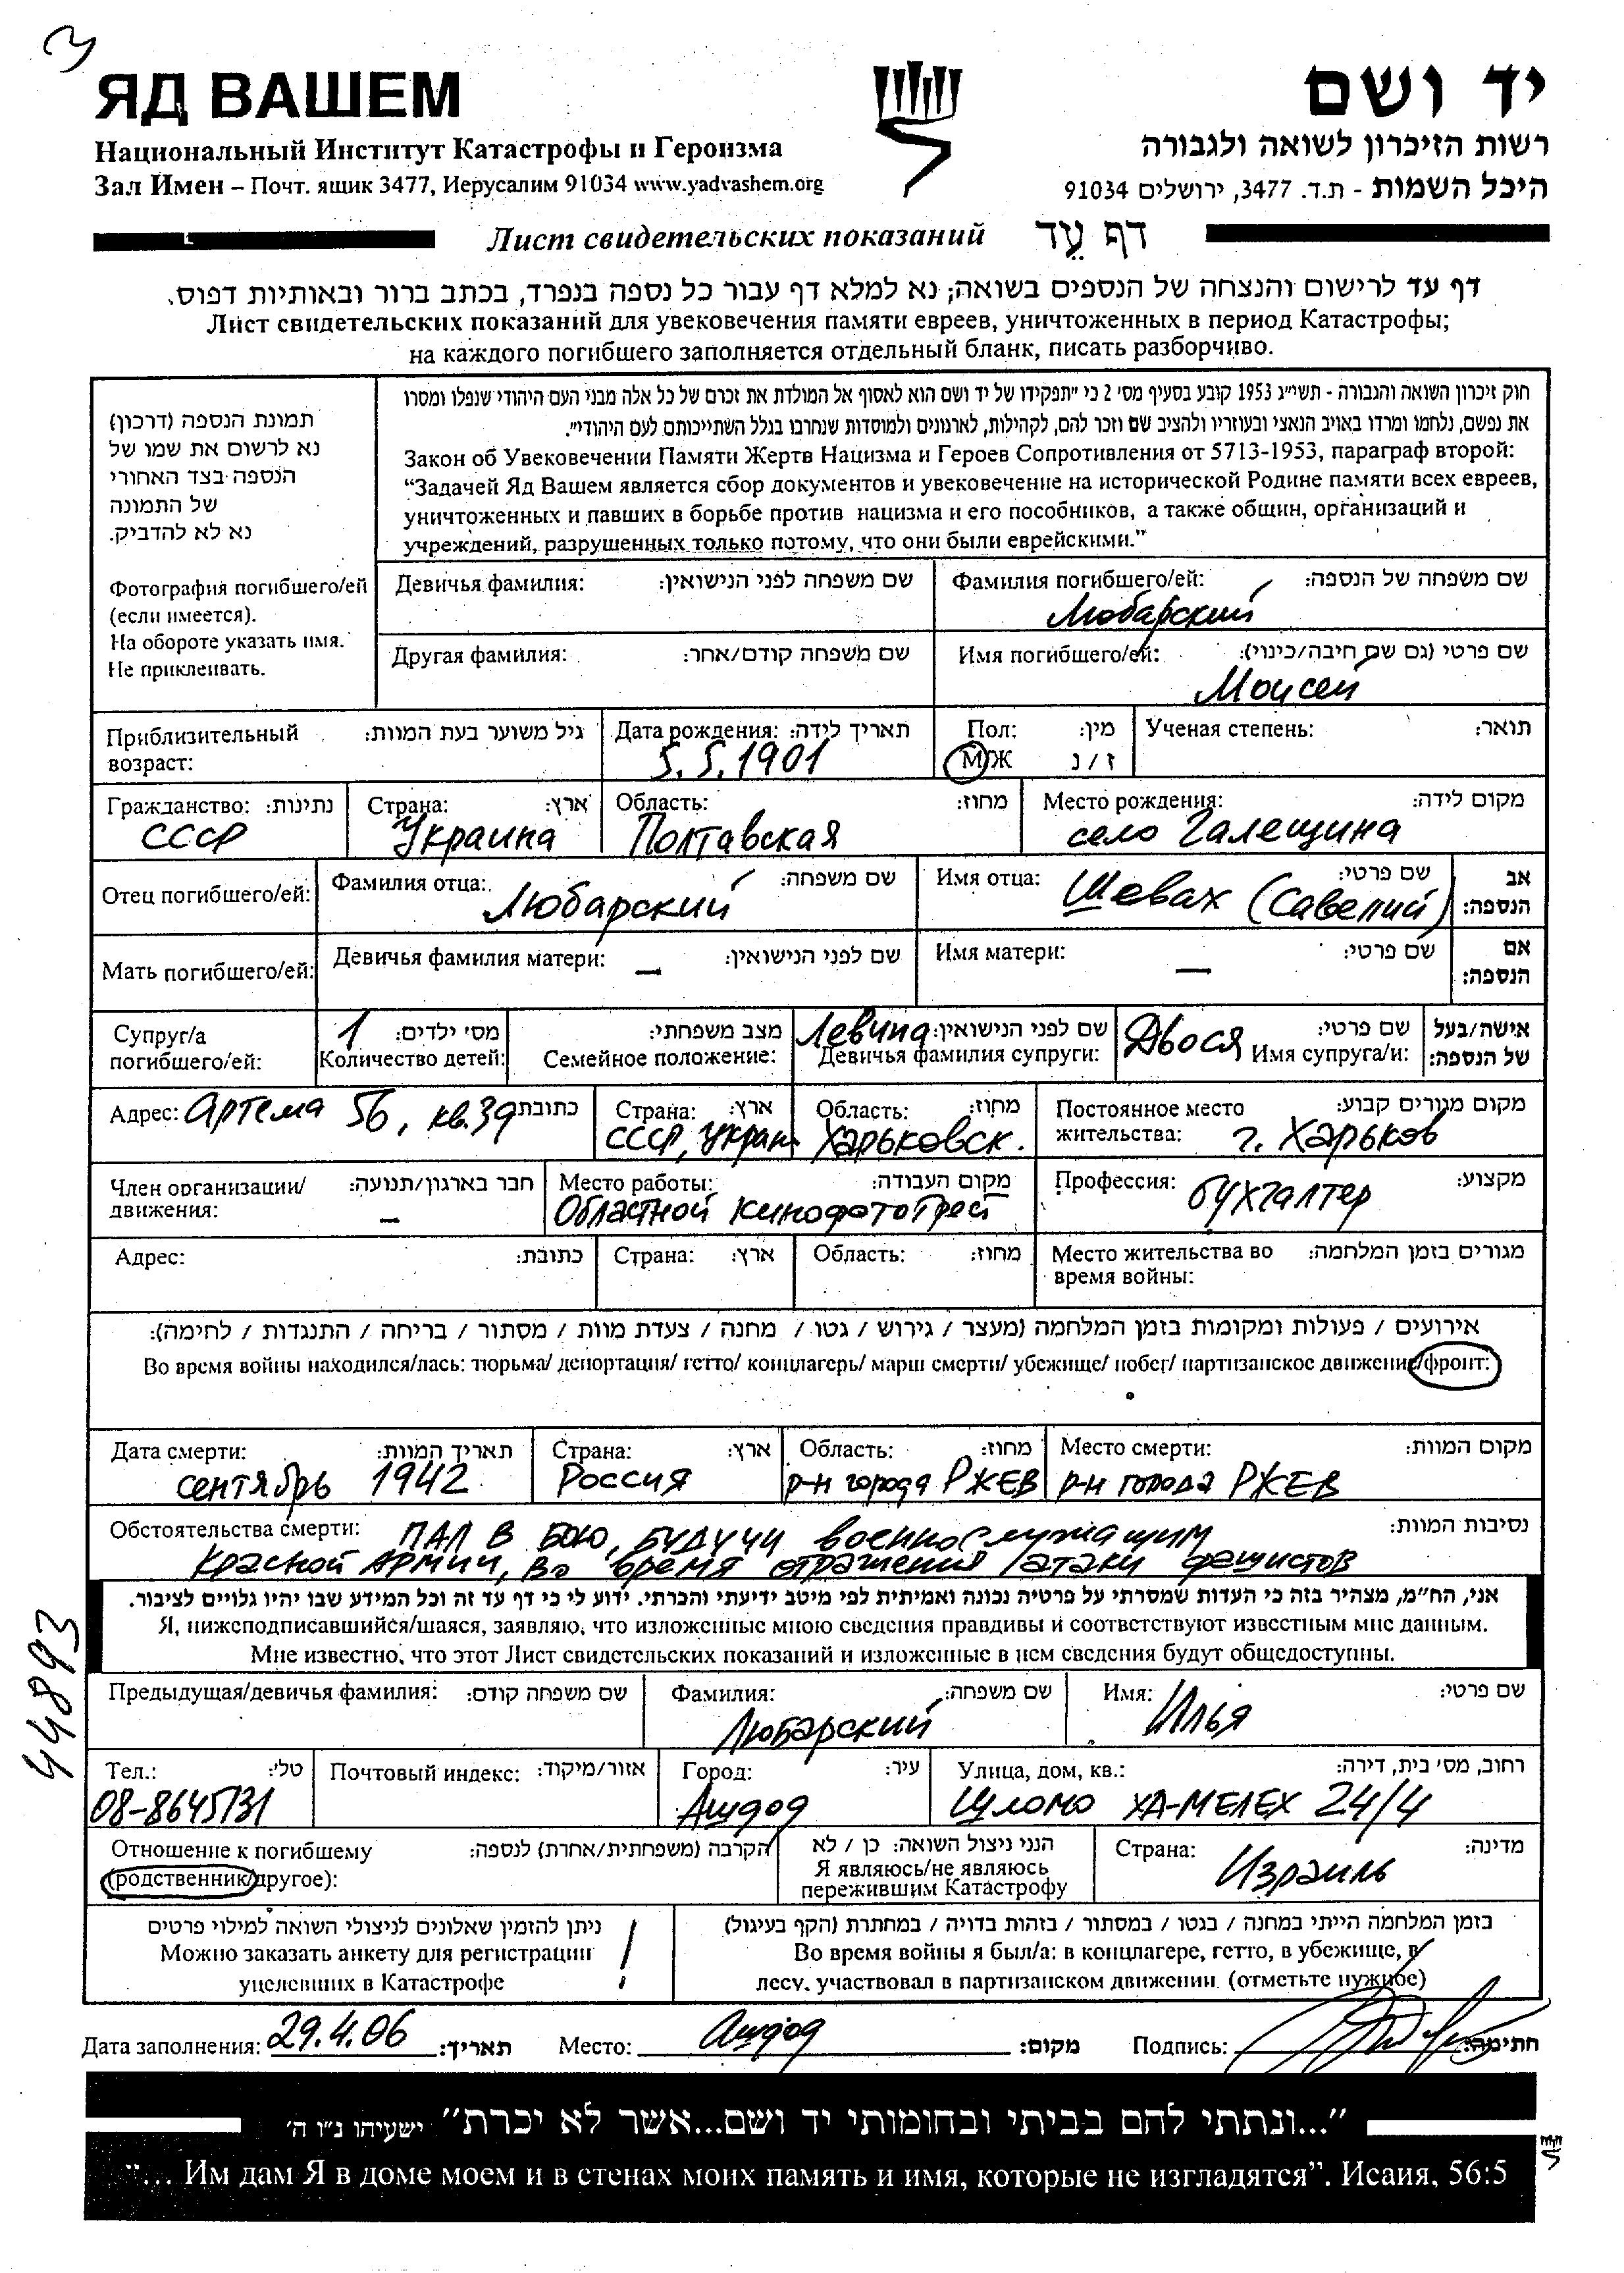 ЯД ВАШЕМ
יד ושם
Национальный Институт Катастрофы и Героизма
רשות הזיכרון לשואה ולגבורה
Зал Имен – Почт. ящик 3477, Иерусалим 91034 www.yadvashem.org
היכל השמות - ת.ד. 3477, ירושלים 91034
Лист свидетельских показаний דף עֵד
דף עד לרישום והנצחה של הנספים בשואה; נא למלא דף עבור כל נספה בנפרד, בכתב ברור ובאותיות דפוס.
Лист свидетельских показаний для увековечения памяти евреев, уничтоженных в период Катастрофы;
на каждого погибшего заполняется отдельный бланк, писать разборчиво.
תמונת הנספה (דרכון)
נא לרשום את שמו של
הנספה בצד האחורי
של התמונה
נא לא להדביק.
Фотография погибшего/ей
(если имеется).
На обороте указать имя.
Не приклеивать.
חוק זיכרון השואה והגבורה - תשי״ג 1953 קובע בסעיף מס׳ 2 כי ״תפקידו של יד ושם הוא לאסוף אל המולדת את זכרם של כל אלה מבני העם היהודי שנפלו ומסרו
את נפשם, נלחמו ומרדו באויב הנאצי ובעוזריו ולהציב שם וזכר להם, לקהילות, לארגונים ולמוסדות שנחרבו בגלל השתייכותם לעם היהודי״.
Закон об Увековечении Памяти Жертв Нацизма и Героев Сопротивления от 5713-1953, параграф второй:
“Задачей Яд Вашем является сбор документов и увековечение на исторической Родине памяти всех евреев,
уничтоженных и павших в борьбе против нацизма и его пособников, а также общин, организаций и
учреждений, разрушенных только потому, что они были еврейскими.”
Девичья фамилия: שם משפחה לפני הנישואין:
Фамилия погибшего/ей: שם משפחה של הנספה:
Любарский
Другая фамилия: שם משפחה קודם/אחר:
Имя погибшего/ей: שם פרטי (גם שם חיבה/כינוי):
Моисей
Приблизительный возраст: גיל משוער בעת המוות:
Дата рождения: תאריך לידה:
5.5.1901
Пол: מין:
М/Ж ז / נ
Ученая степень: תואר:
Гражданство: נתינות:
СССР
Страна: ארץ:
Украина
Область: מחוז:
Полтавская
Место рождения: מקום לידה:
село Галещина
Отец погибшего/ей:
Фамилия отца: שם משפחה:
Любарский
Имя отца: שם פרטי:
Шевах (Савелий)
אב הנספה:
Мать погибшего/ей:
Девичья фамилия матери: שם לפני הנישואין:
—
Имя матери: שם פרטי:
—
אם הנספה:
Супруг/а погибшего/ей:
1 מס׳ ילדים:
Количество детей:
מצב משפחתי:
Семейное положение:
Левина שם לפני הנישואין:
Девичья фамилия супруги:
Двося שם פרטי:
Имя супруга/и:
אישה/בעל של הנספה:
Адрес: Артема 56, кв.39 כתובת
Страна: ארץ:
СССР, Украин.
Область: מחוז:
Харьковск.
Постоянное место жительства: מקום מגורים קבוע:
г. Харьков
Член организации/движения: חבר בארגון/תנועה:
—
Место работы: מקום העבודה:
Областной кинофототрест
Профессия: מקצוע:
бухгалтер
Адрес: כתובת:
Страна: ארץ:
Область: מחוז:
Место жительства во время войны: מגורים בזמן המלחמה:
אירועים / פעולות ומקומות בזמן המלחמה (מעצר / גירוש / גטו / מחנה / צעדת מוות / מסתור / בריחה / התנגדות / לחימה):
Во время войны находился/лась: тюрьма/ депортация/ гетто/ концлагерь/ марш смерти/ убежище/ побег/ партизанское движение/фронт:
Дата смерти: תאריך המוות:
сентябрь 1942
Страна: ארץ:
Россия
Область: מחוז:
р-н города РЖЕВ
Место смерти: מקום המוות:
р-н города РЖЕВ
Обстоятельства смерти: נסיבות המוות:
ПАЛ В БОЮ, БУДУЧИ военнослужащим
Красной Армии, во время отражения атаки фашистов
אני, הח״מ, מצהיר בזה כי העדות שמסרתי על פרטיה נכונה ואמיתית לפי מיטב ידיעתי והכרתי. ידוע לי כי דף עד זה וכל המידע שבו יהיו גלויים לציבור.
Я, нижеподписавшийся/шаяся, заявляю, что изложенные мною сведения правдивы и соответствуют известным мне данным.
Мне известно, что этот Лист свидетельских показаний и изложенные в нем сведения будут общедоступны.
44893
Предыдущая/девичья фамилия: שם משפחה קודם:
Фамилия: שם משפחה:
Любарский
Имя: שם פרטי:
Илья
Тел.: טל׳:
08-8645131
Почтовый индекс: אזור/מיקוד:
Город: עיר:
Ашдод
Улица, дом, кв.: רחוב, מס׳ בית, דירה:
Шломо ХА-МЕЛЕХ 24/4
Отношение к погибшему הקרבה (משפחתית/אחרת) לנספה:
(родственник/другое):
הנני ניצול השואה: כן / לא
Я являюсь/не являюсь
пережившим Катастрофу
Страна: מדינה:
Израиль
ניתן להזמין שאלונים לניצולי השואה למילוי פרטים
Можно заказать анкету для регистрации
уцелевших в Катастрофе
!
בזמן המלחמה הייתי במחנה / בגטו / במסתור / בזהות בדויה / במחתרת (הקף בעיגול)
Во время войны я был/а: в концлагере, гетто, в убежище, в
лесу, участвовал в партизанском движении (отметьте нужное)
Дата заполнения: 29.4.06 תאריך: Место: Ашдод מקום: Подпись: חתימה:
״...ונתתי להם בביתי ובחומותי יד ושם...אשר לא יכרת״ ישעיהו נ״ו ה׳
“... Им дам Я в доме моем и в стенах моих память и имя, которые не изгладятся”. Исаия, 56:5